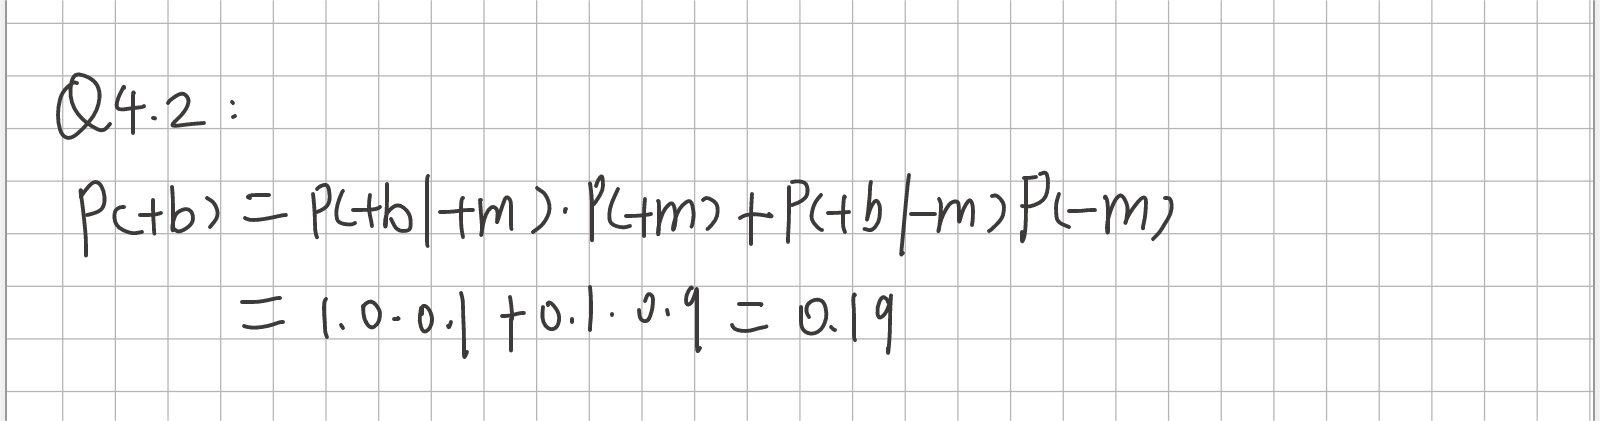 Q4.2:
P(+b) = P(+b|+m)·P(+m)+P(+b|-m)P(-m)
= 1.0·0.1+0.1·0.9 = 0.19